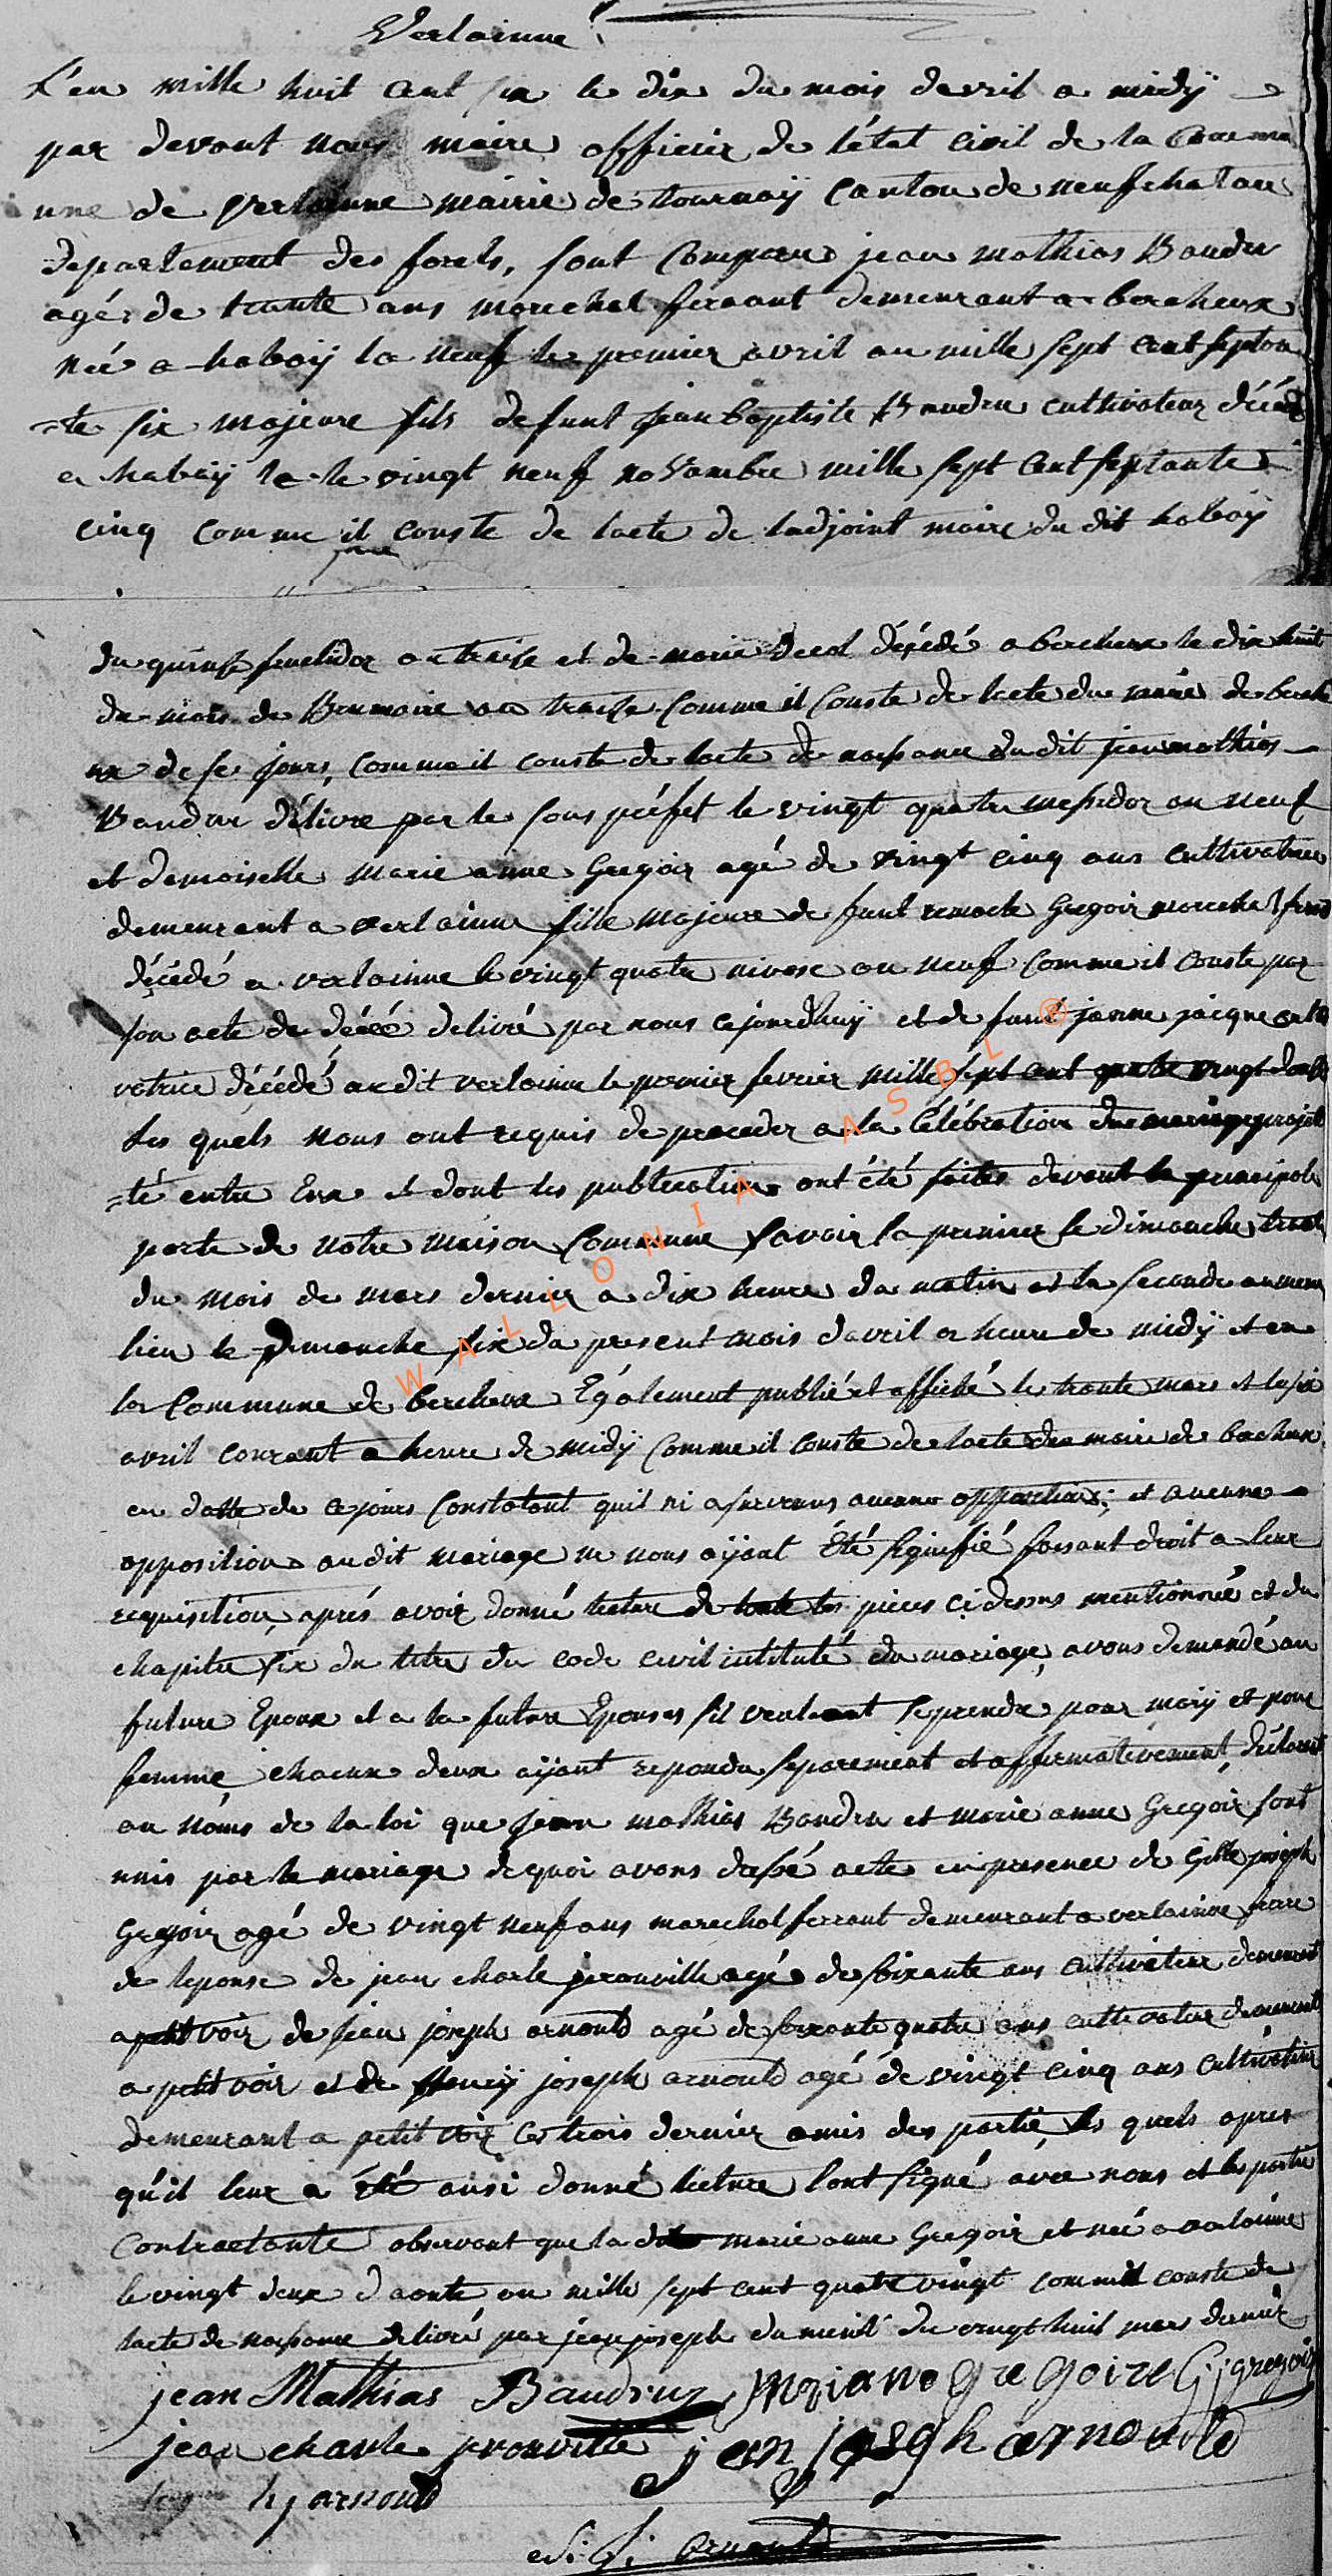 Verlainne
L'an mille huit cent six le dix du mois davril a midÿ
par devant nous maire officier de létat civil de la Commu
une de verlainne mairie de tournaÿ Canton de neufchatau
departement des forets, sont Comparu jean mathias Baudru
agé de trante ans marechal ferrant demeurant a bercheux
née a habaÿ la neuf le premier avril an mille sept cent septan
=te six majeure fils defunt jean baptiste Baudru cultivateur décédé
a habaÿ la le vingt neuf novambre mille sept cent septante
cinq comme il conste de lacte de ladjoint maire du dit habaÿ
du quinse fructidor an traise et de marie decol décédé a bercheux le dix huit
du mois de Brumaire an traise Comme il Conste de lacte du maire de berche
ux de se jours, comme il conste de lacte de naissance du dit jean mathias
Baudru délivre par le sous préfet le vingt quatre messidor an neuf
et demoiselle marie anne Gregoir agé de vingt cinq ans cultivatrice
demeurant a verlainne fille majeure de funt remacle Gregoir marechal ferrand
décédé a verlainne le vingt quatre nivose an neuf comme il conste par
son acte de décée delivré par nous cejourdhuÿ et de funt janne jacque culti
vatrice décédé audit verlainne le premier fevrier mille sept cent quatre vingt douse
Les quels nous ont requis de proceder a la Célébration du mariage projet
=té entre Eux et dont les publications ont été faites devant la principale
porte de notre maison Commune savoir la premier le dimanche trante
du mois de mars dernier a dix heure du matin et la seconde au meme
lieu le Dimanche six du present mois davril a heure de midÿ et en
la Commune de bercheux Également publié et affiché le trante mars et le six
avril courant a heure de midÿ comme il conste de lacte du maire de bercheux
en datte de cejours Constatant quil ni a survenus aucune opposition; et aucune
opposition audit mariage ne nous aÿant été signifié faisant droit a leur
requisition, aprés avoir donné lecture de toute les pieces cidessus mentionnée et du
chapitre six du titre du code civil intitulé du mariage, avons demandé au
future Epoux et a la future Epouses sil veulent se prendre pour marÿ et pour
femme, chacun deux aÿant repondu separement et affirmativement, déclarant
au noms de la loi que jean mathias Baudru et marie anne Gregoir sont
unis par le mariage de quoi avons dressé acte en presence de Gille joseph
Gregoir agé de vingt neuf ans marechal ferrant demeurant a verlainne frere
de lepouse de jean charle jeronville agé de soixante ans cultivateur demeurant
a petit voir de jean joseph arnould agé de soixante quatre ans cultivateur demeurant
a petit voir et de Henrÿ joseph arnould agé de vingt cinq ans cultivateur
demeurant a petit voir Ces trois dernier amis des partie, les quels apres
qu'il leur a été aussi donné lecture lont signé avec nous et les partie
Contractante observant que la dite marie anne Gregoir et née a verlainne
le vingt deux daoute an mille sept cent quatre vingt comme il conste de
lacte de naissance delivré par jean joseph dumenil du vingt huit mars dernier
jean Mathias Baudrux Mariane gregoire G j gregoir
jean charle jronville jean joseph arnould
h j arnould
arnould
WALLONIA ASBL ®